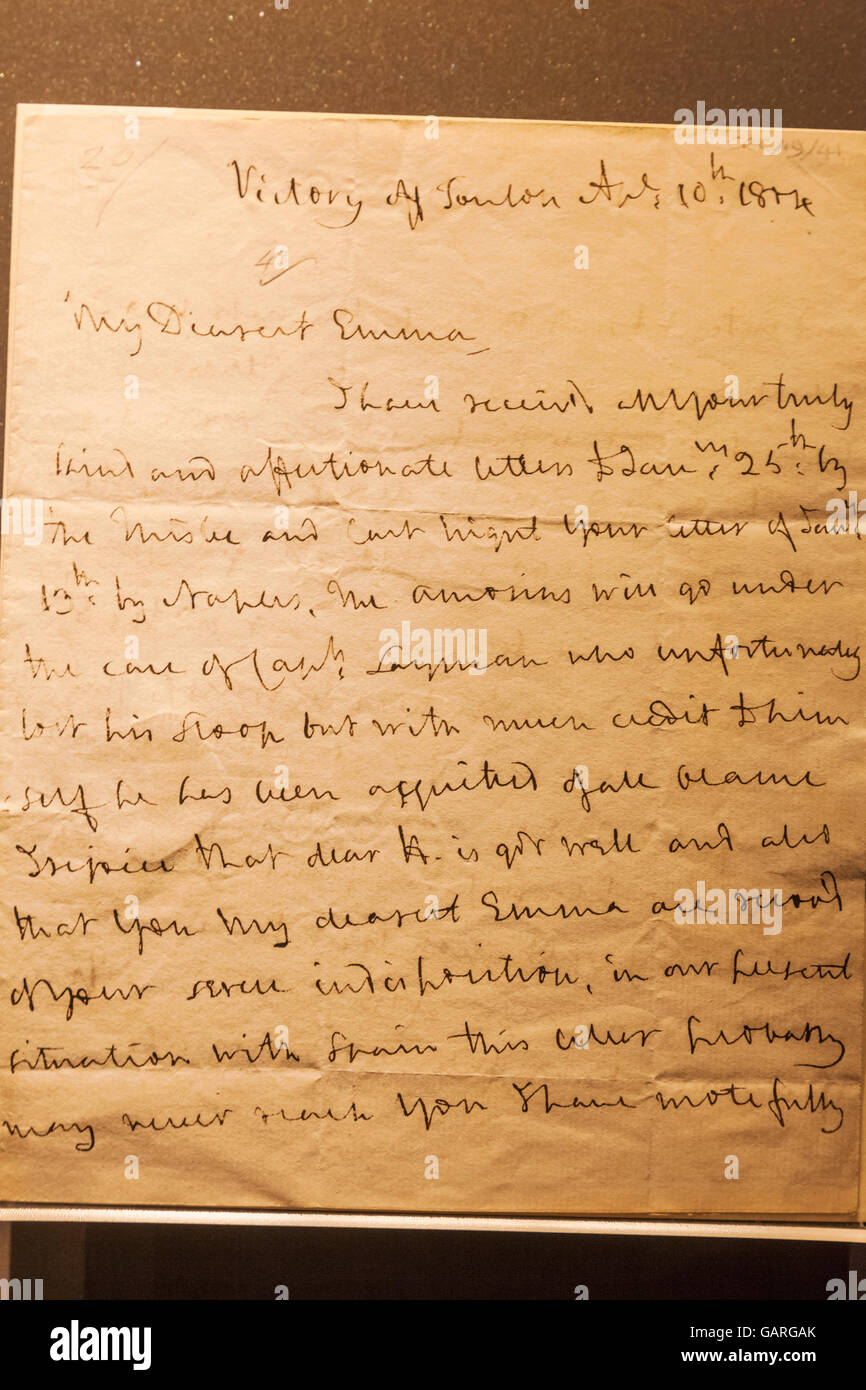 Victory off Toulon Apl: 10th: 1804
My Dearest Emma
I have received all your truly
kind and affectionate letters to Jany: 25th: by
the Thisbe and last night your letter of Jany:
13th: by Naples, The amorins will go under
the care of Capt: Layman who unfortunately
lost his sloop but with much credit to him
self he has been acquitted of all blame
I rejoice that dear H. is got well and also
that you My dearest Emma are recov'd
of your severe indisposition, in our present
situation with Spain this letter probably
may never reach you I have wrote fully
alamy
Image ID: GARGAK
www.alamy.com